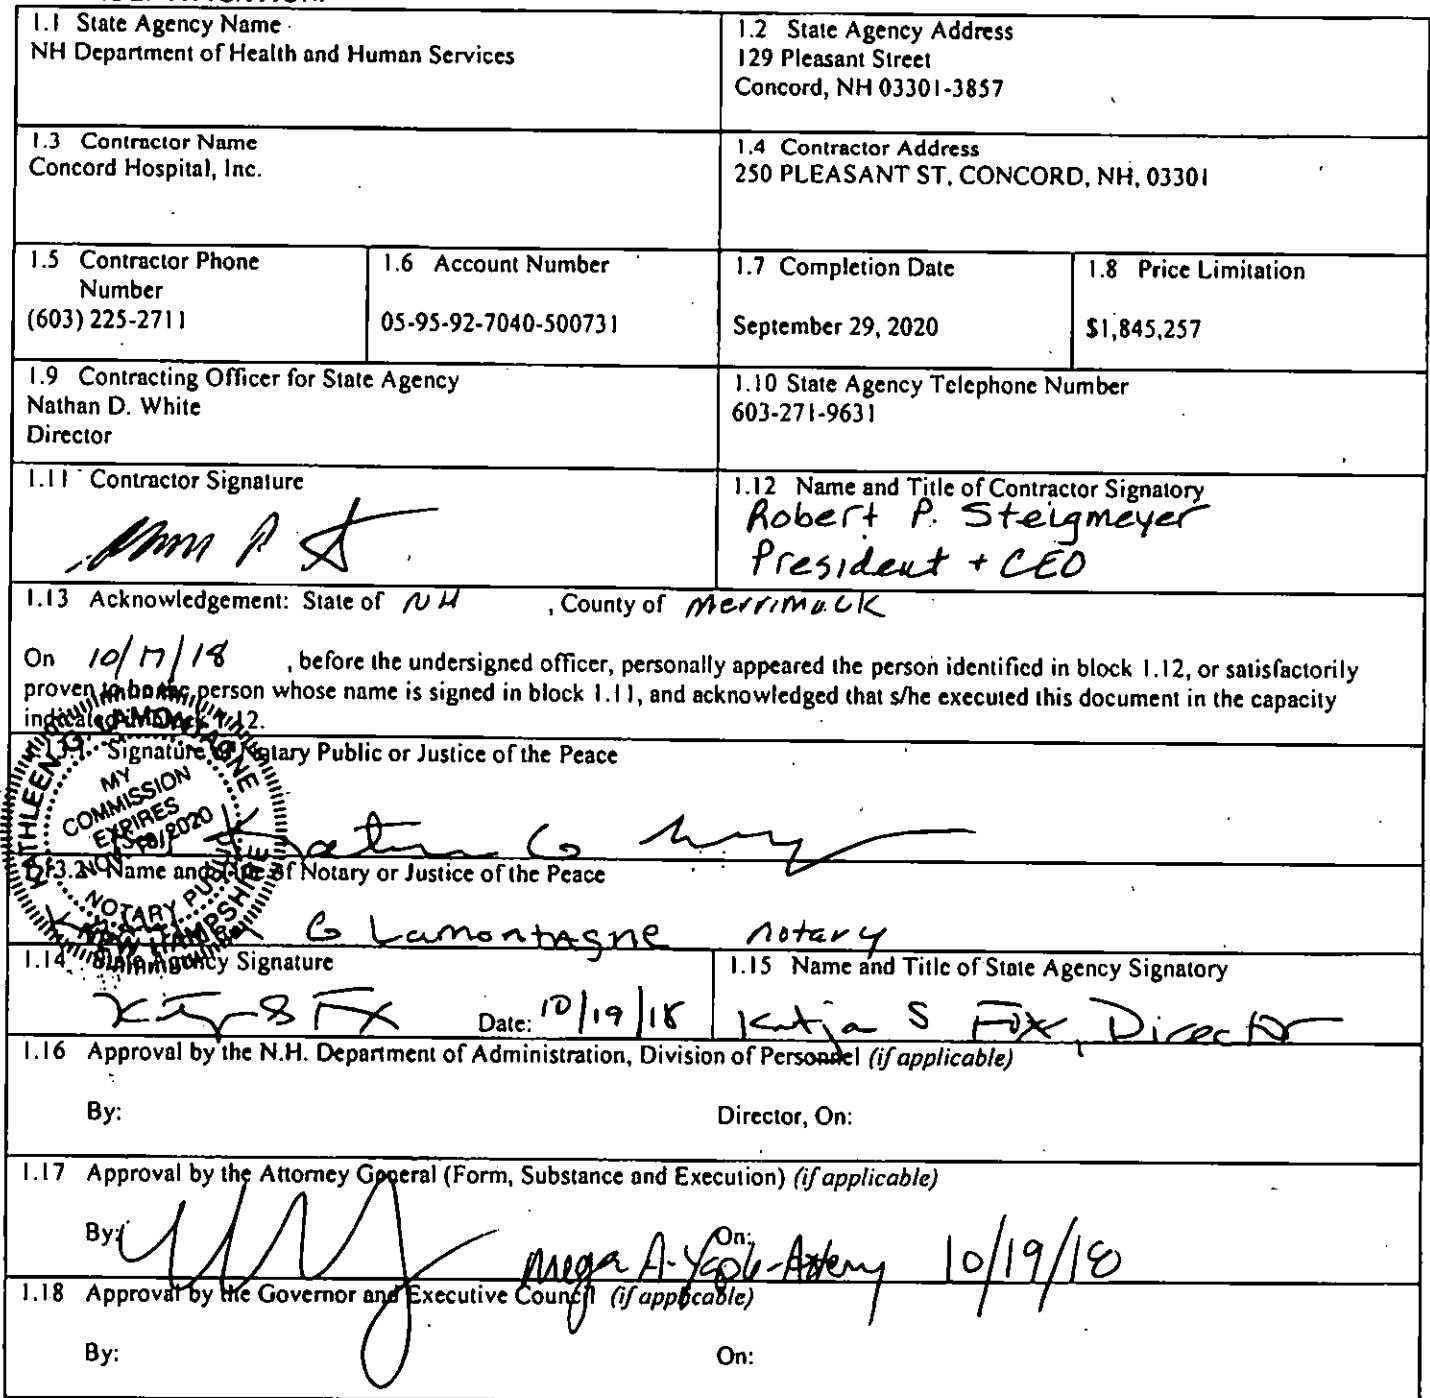 1.1 State Agency Name
NH Department of Health and Human Services
1.2 State Agency Address
129 Pleasant Street
Concord, NH 03301-3857
1.3 Contractor Name
Concord Hospital, Inc.
1.4 Contractor Address
250 PLEASANT ST, CONCORD, NH, 03301
1.5 Contractor Phone
Number
(603) 225-2711
1.6 Account Number
05-95-92-7040-500731
1.7 Completion Date
September 29, 2020
1.8 Price Limitation
$1,845,257
1.9 Contracting Officer for State Agency
Nathan D. White
Director
1.10 State Agency Telephone Number
603-271-9631
1.11 Contractor Signature
1.12 Name and Title of Contractor Signatory
Robert P. Steigmeyer
President + CEO
1.13 Acknowledgement: State of NH , County of Merrimack
On 10/17/18 , before the undersigned officer, personally appeared the person identified in block 1.12, or satisfactorily
proven to be the person whose name is signed in block 1.11, and acknowledged that s/he executed this document in the capacity
indicated in block 1.12.
Signature of Notary Public or Justice of the Peace
MY
COMMISSION
EXPIRES
2020
NOTARY PUBLIC
NEW HAMPSHIRE
G. LAMONTAGNE
1.13.2 Name and Title of Notary or Justice of the Peace
G Lamontagne notary
1.14 State Agency Signature
Date: 10/19/18
1.15 Name and Title of State Agency Signatory
Katja S Fox, Director
1.16 Approval by the N.H. Department of Administration, Division of Personnel (if applicable)
By: Director, On:
1.17 Approval by the Attorney General (Form, Substance and Execution) (if applicable)
By: On: 10/19/18
1.18 Approval by the Governor and Executive Council (if applicable)
By: On: